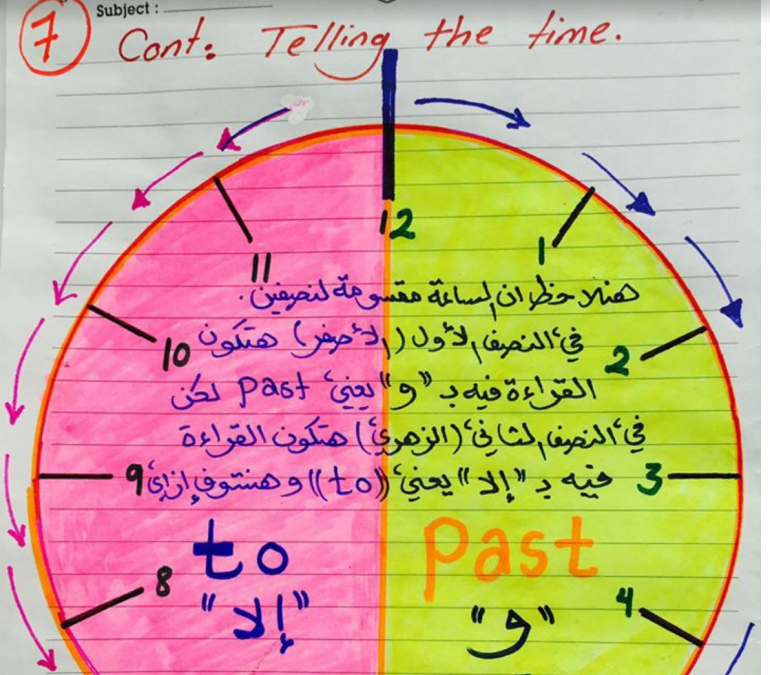 Subject :
7
Cont: Telling the time.
12
11
1
هنلاحظ ان الساعة مقسومة لنصفين.
10
في النصف الأول (الأصفر) هتكون
2
القراءة فيه بـ "و" يعني past لكن
في النصف الثاني (الزهري) هتكون القراءة
9
فيه بـ "إلا" يعني ((to)) و هنشوف إزاي
3
to
past
8
"إلا"
"و"
4